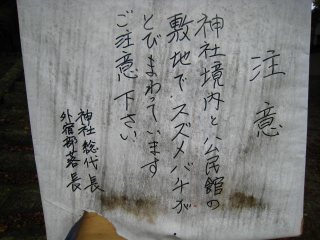 注意
神社境内と公民館の
敷地でスズメバチが
とびまわっています
ご注意下さい
神社総代長
外宿部落長